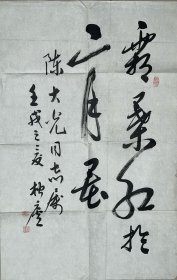 霜叶红於
二月花
陈大光同志属
壬戌之夏 柏